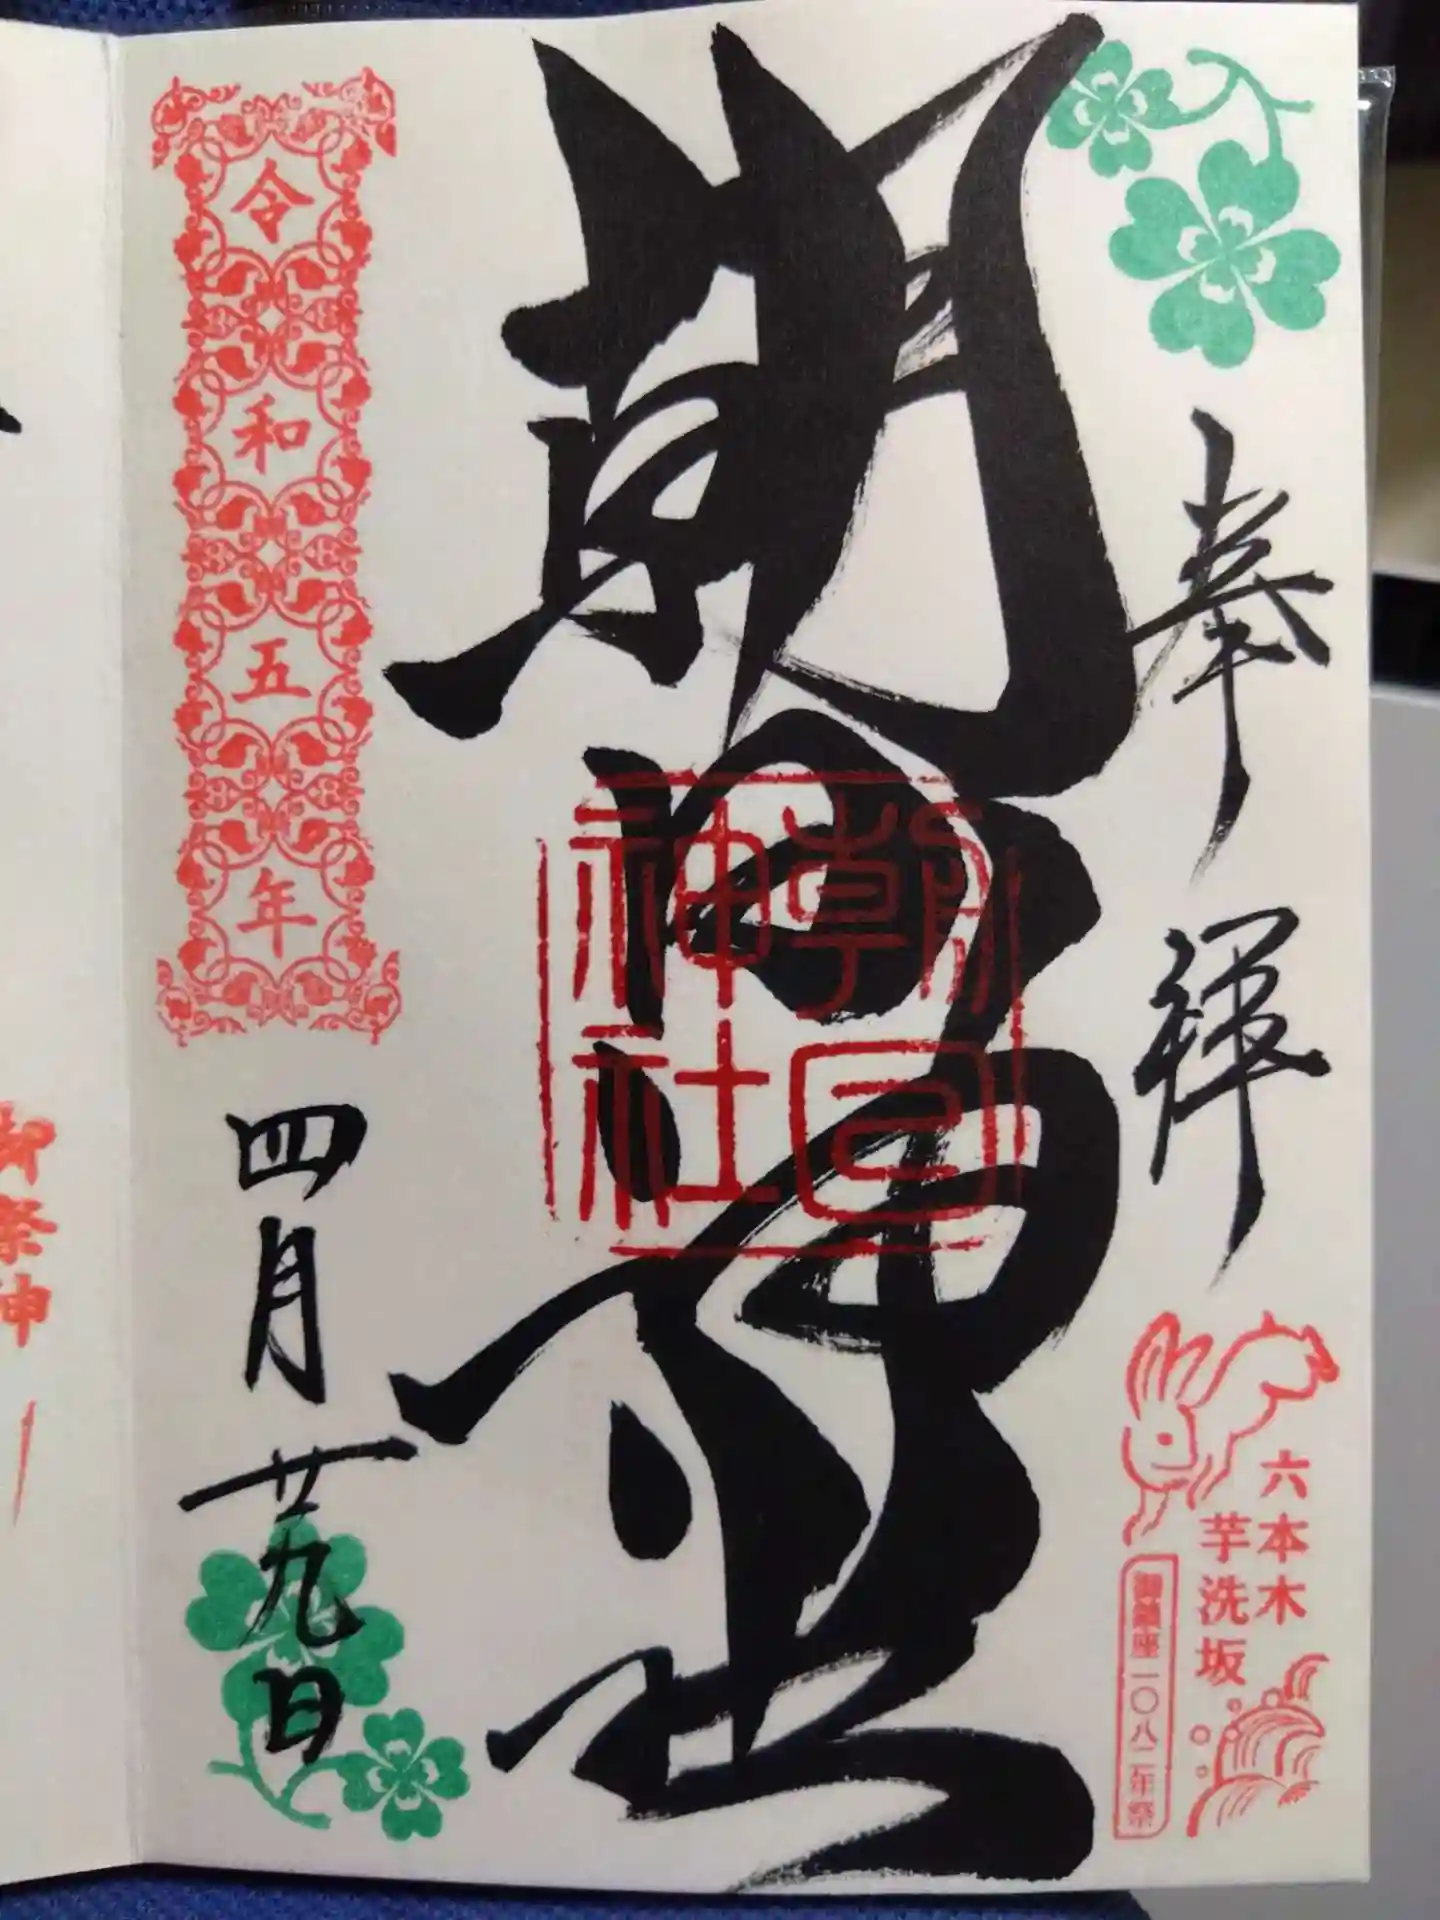 奉拝
六本木
芋洗坂
御鎮座一〇八二年祭
朝日神社
朝日
神社
令和五年
四月廿九日
御祭神